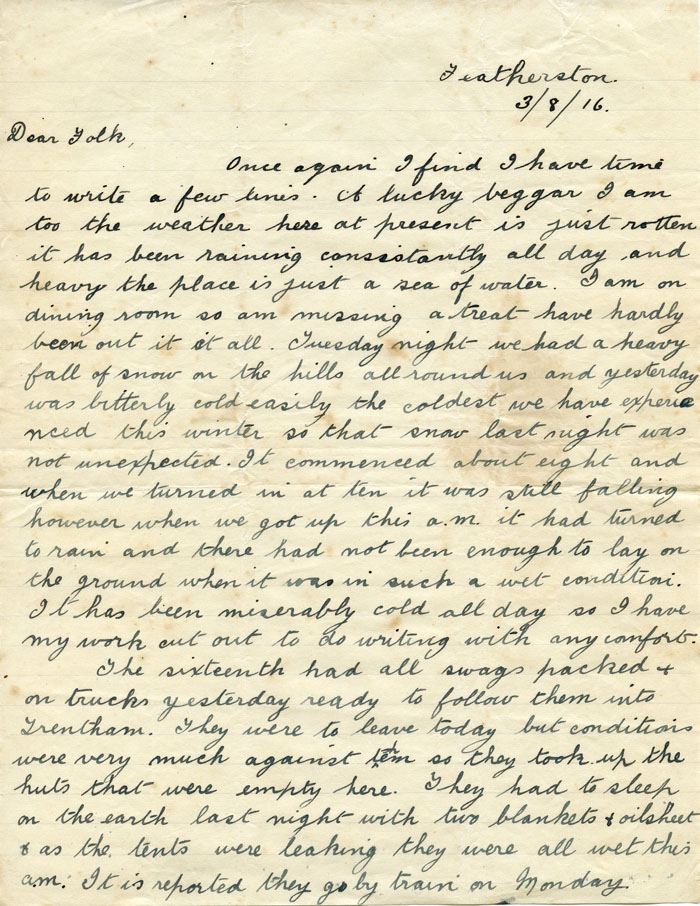 Featherston.
3/8/16.
Dear Folk,
Once again I find I have time
to write a few lines. A lucky beggar I am
too the weather here at present is just rotten
it has been raining consistantly all day and
heavy the place is just a sea of water. I am on
dining room so am missing a treat have hardly
been out it it all. Tuesday night we had a heavy
fall of snow on the hills all round us and yesterday
was bitterly cold easily the coldest we have experie
nced this winter so that snow last night was
not unexpected. It commenced about eight and
when we turned in at ten it was still falling
however when we got up this a.m. it had turned
to rain and there had not been enough to lay on
the ground when it was in such a wet condition.
It has been miserably cold all day so I have
my work cut out to do writing with any comfort.
The sixteenth had all swags packed +
on trucks yesterday ready to follow them into
Trentham. They were to leave today but conditions
were very much against so they took up the
huts that were empty here. They had to sleep
on the earth last night with two blankets & oilsheet
& as the tents were leaking they were all wet this
am. It is reported they go by train on Monday.